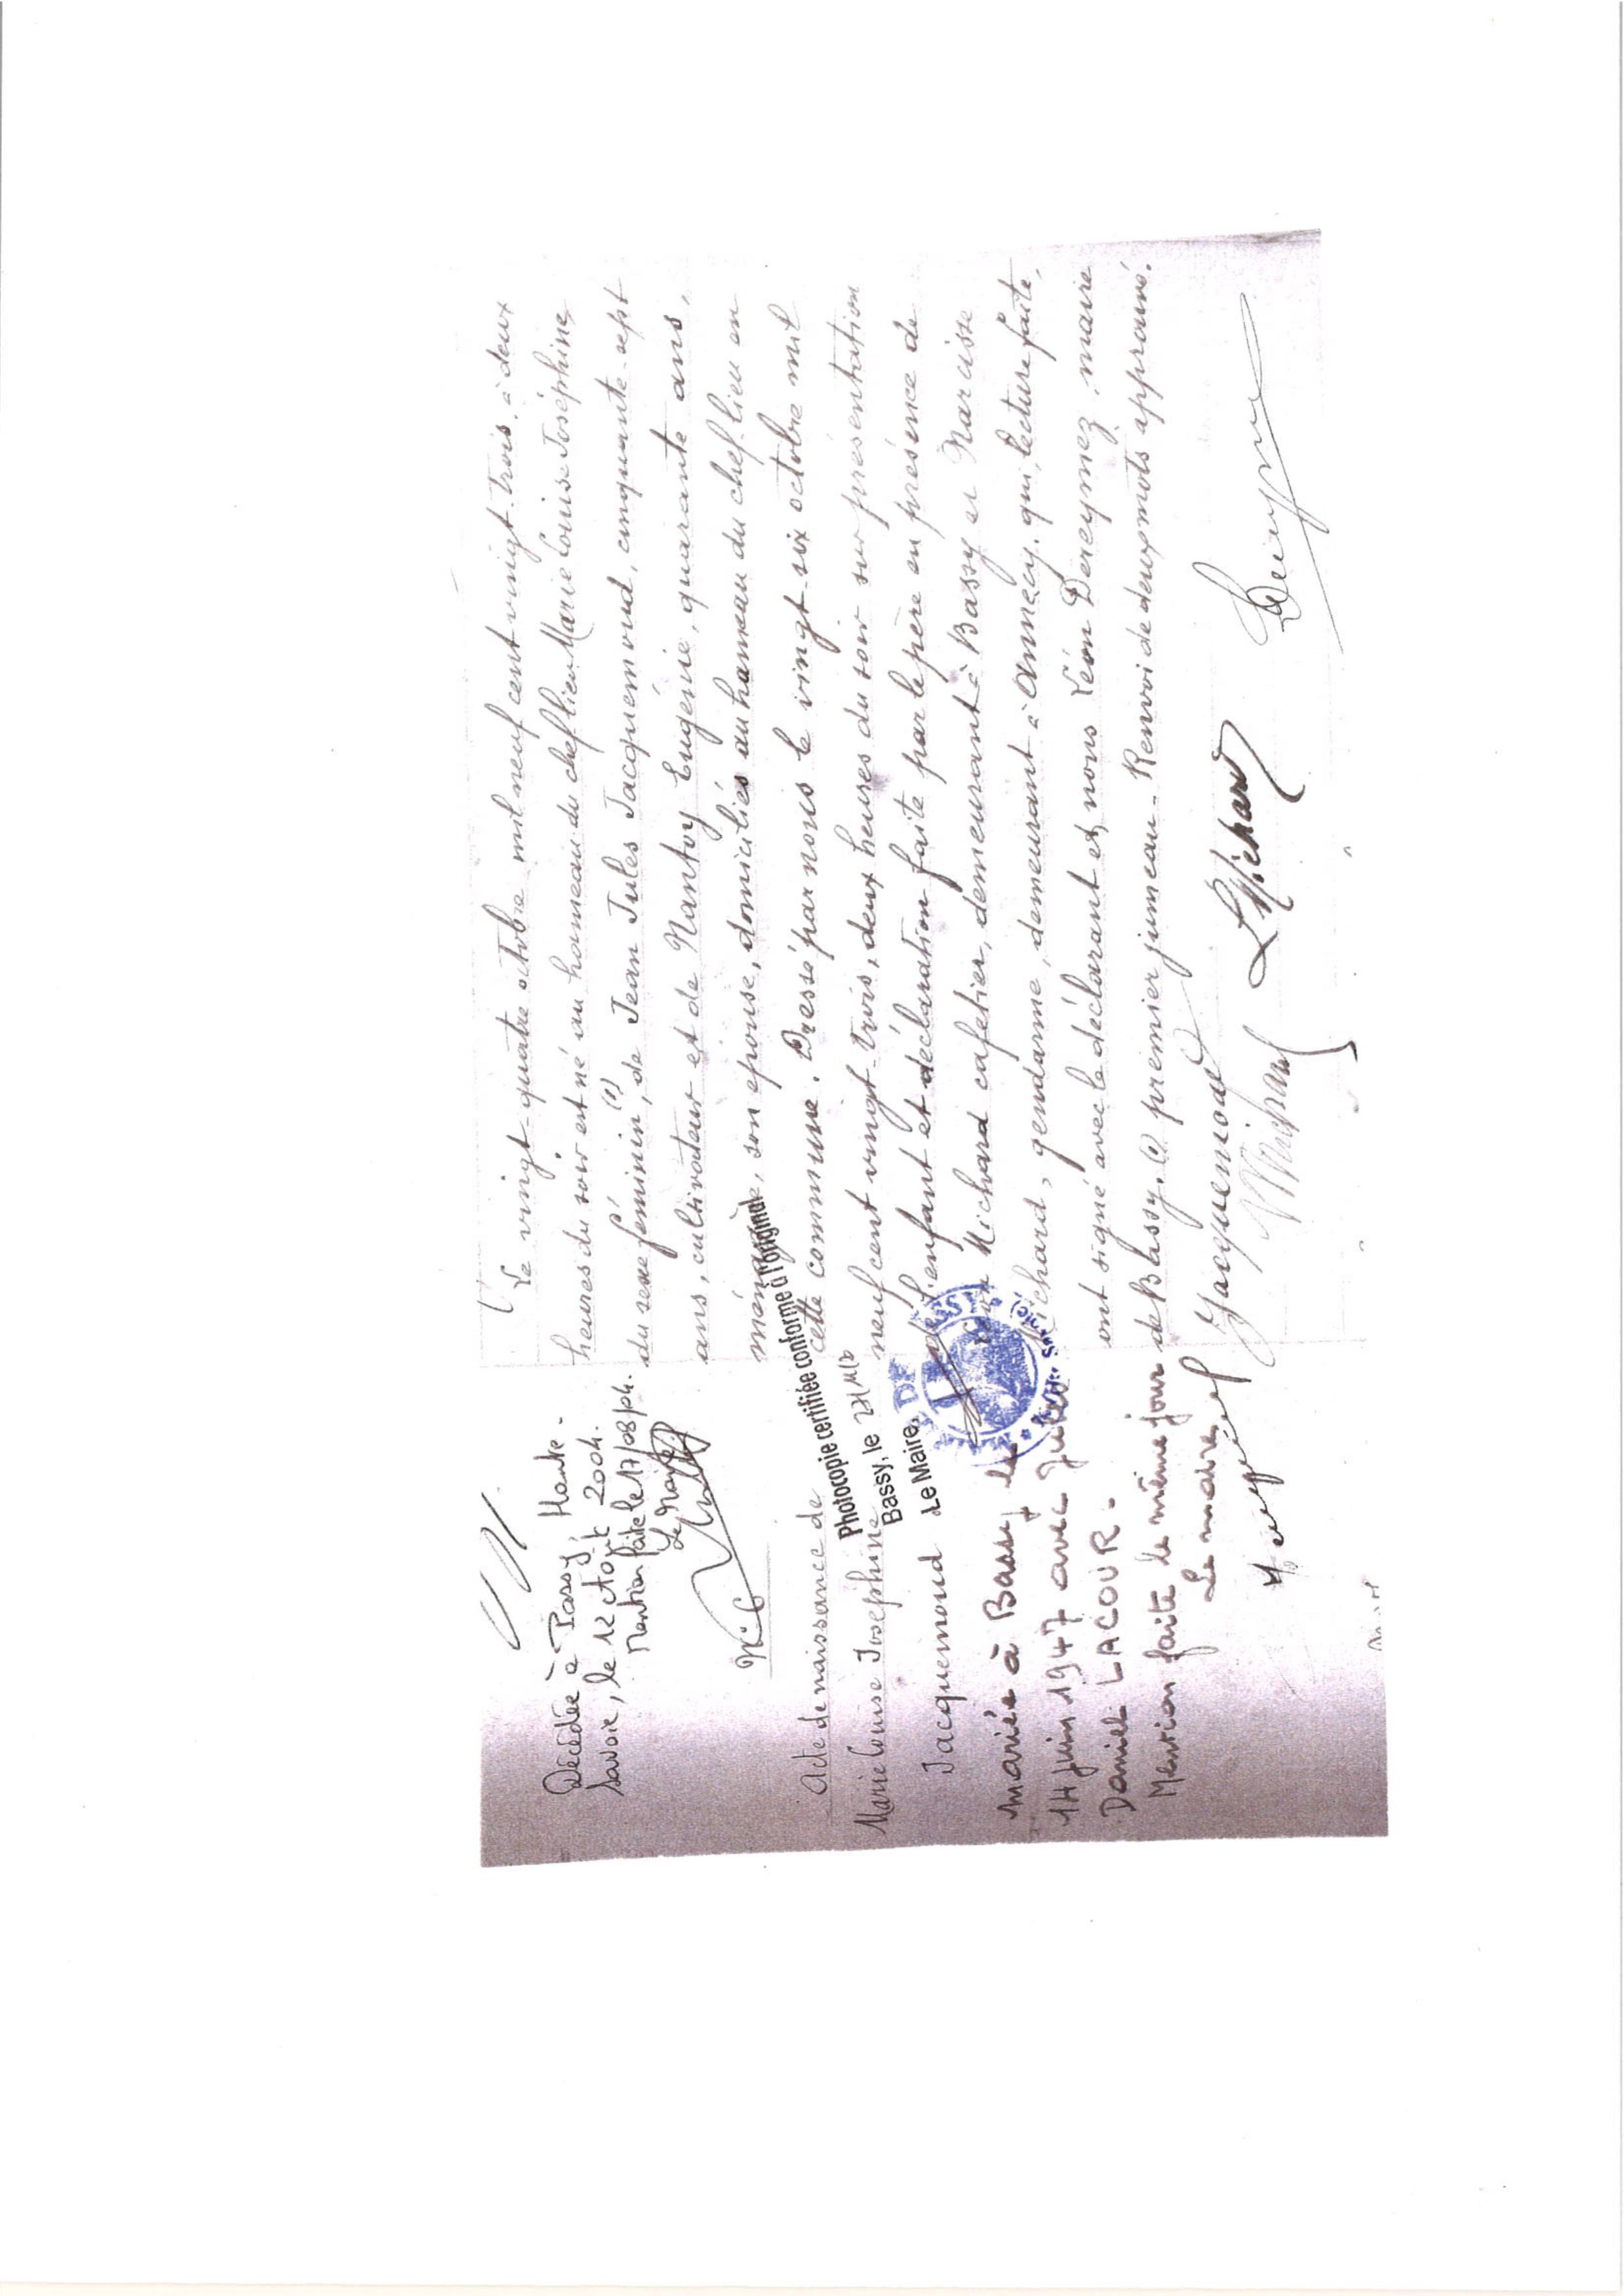 Décédée à Passy, Haute-
Savoie, le 12 août 2004.
Mention faite le 17/08/04.
Le Maire,
N° 6
Acte de naissance de
Marie Louise Joséphine
Jacquemoud
Mariée à Bassy le
14 juin 1947 avec Jules
Daniel LACOUR.
Mention faite le même jour
Le maire
Le vingt-quatre octobre mil neuf cent vingt-trois, à deux
heures du soir est né au hameau du chef-lieu Marie Louise Joséphine
du sexe féminin (1), de Jean Jules Jacquemoud, cinquante-sept
ans, cultivateur et de Nantoy Eugénie, quarante ans,
ménagère, son épouse, domiciliés au hameau du chef-lieu en
cette commune. Dressé par nous le vingt-six octobre mil
neuf cent vingt-trois, deux heures du soir sur présentation
de l'enfant et déclaration faite par le père en présence de
Léon Michard cafetier, demeurant à Bassy et Narcisse
Michard, gendarme, demeurant à Annecy, qui, lecture faite,
ont signé avec le déclarant et nous Léon Dereymez, maire
de Bassy. (1) premier jumeau - Renvoi de deux mots approuvé.
Jacquemoud
Michard
L Michard
Photocopie certifiée conforme à l'original
Bassy, le
Le Maire,